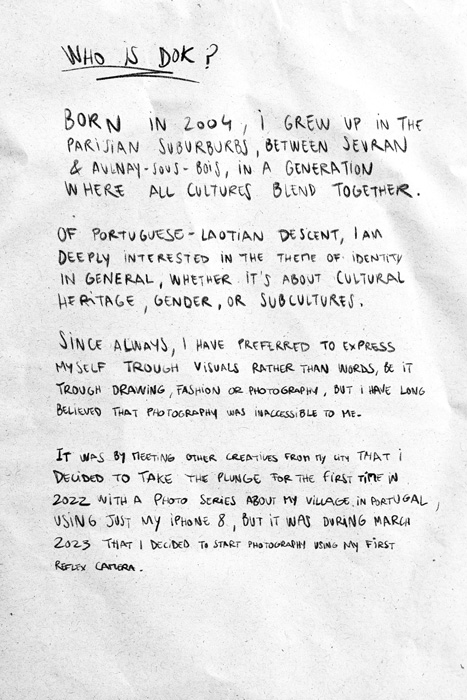 WHO IS DOK ?
BORN IN 2004, I GREW UP IN THE
PARISIAN SUBURBURBS, BETWEEN SEVRAN
& AULNAY-SOUS-BOIS, IN A GENERATION
WHERE ALL CULTURES BLEND TOGETHER.
OF PORTUGUESE-LAOTIAN DESCENT, I AM
DEEPLY INTERESTED IN THE THEME OF IDENTITY
IN GENERAL, WHETHER IT'S ABOUT CULTURAL
HERITAGE, GENDER, OR SUBCULTURES.
SINCE ALWAYS, I HAVE PREFERRED TO EXPRESS
MYSELF TROUGH VISUALS RATHER THAN WORDS, BE IT
TROUGH DRAWING, FASHION OR PHOTOGRAPHY, BUT I HAVE LONG
BELIEVED THAT PHOTOGRAPHY WAS INACCESSIBLE TO ME.
IT WAS BY MEETING OTHER CREATIVES FROM MY CITY THAT I
DECIDED TO TAKE THE PLUNGE FOR THE FIRST TIME IN
2022 WITH A PHOTO SERIES ABOUT MY VILLAGE IN PORTUGAL,
USING JUST MY IPHONE 8, BUT IT WAS DURING MARCH
2023 THAT I DECIDED TO START PHOTOGRAPHY USING MY FIRST
REFLEX CAMERA.